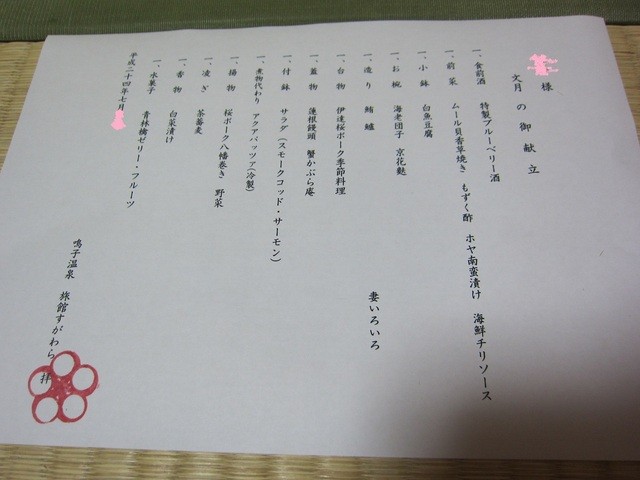 様
文月の御献立
一、食前酒 特製ブルーベリー酒
一、前菜 ムール貝香草焼き もずく酢 ホヤ南蛮漬け 海鮮チリソース
一、小鉢 白魚豆腐
一、お椀 海老団子 京花麩
一、造り 鮪 鱸 妻いろいろ
一、台物 伊達桜ポーク季節料理
一、蓋物 蓮根饅頭 蟹かぶら庵
一、付鉢 サラダ(スモークコッド・サーモン)
一、煮物代わり アクアパッツァ(冷製)
一、揚物 桜ポーク八幡巻き 野菜
一、凌ぎ 茶蕎麦
一、香物 白菜漬け
一、水菓子 青林檎ゼリー・フルーツ
平成二十四年七月
鳴子温泉 旅館すがわら 拝